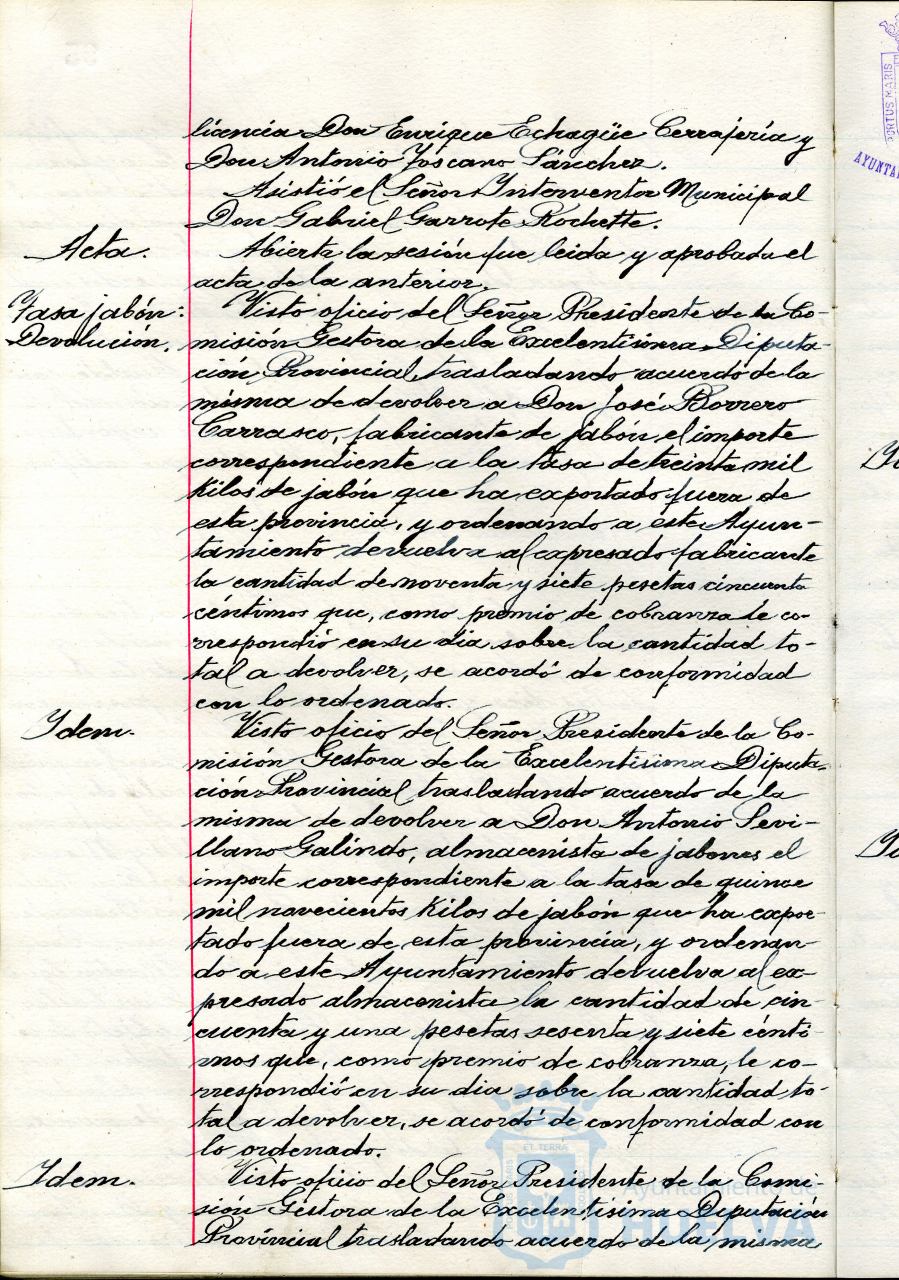 licencia Don Enrique Echagüe Cerrajería y
Don Antonio Toscano Sánchez.
Asistió el Señor Interventor Municipal
Don Gabriel Garrote Rochette.
Acta.
Abierta la sesión fue leida y aprobada el
acta de la anterior.
Tasa jabón:
Devolución.
Visto oficio del Señor Presidente de la Co-
misión Gestora de la Excelentísima Diputa-
ción Provincial trasladando acuerdo de la
misma de devolver a Don José Borrero
Carrasco, fabricante de jabón, el importe
correspondiente a la tasa de treinta mil
kilos de jabón que ha exportado fuera de
esta provincia, y ordenando a este Ayun-
tamiento devuelva al expresado fabricante
la cantidad de noventa y siete pesetas cincuenta
céntimos que, como premio de cobranza le co-
rrespondió en su dia sobre la cantidad to-
tal a devolver, se acordó de conformidad
con lo ordenado.
Idem.
Visto oficio del Señor Presidente de la Co-
misión Gestora de la Excelentísima Diputa-
ción Provincial trasladando acuerdo de la
misma de devolver a Don Antonio Sevi-
llano Galindo, almacenista de jabones el
importe correspondiente a la tasa de quince
mil novecientos kilos de jabón que ha expor-
tado fuera de esta provincia, y ordenan-
do a este Ayuntamiento devuelva al ex-
presado almacenista la cantidad de cin-
cuenta y una pesetas sesenta y siete cénti-
mos que, como premio de cobranza, le co-
rrespondió en su dia sobre la cantidad to-
tal a devolver, se acordó de conformidad con
lo ordenado.
Idem.
Visto oficio del Señor Presidente de la Comi-
sión Gestora de la Excelentísima Diputación
Provincial trasladando acuerdo de la misma
PORTUS MARIS
AYUNTA
ET TERRÆ
Ayuntamiento de
HUELVA